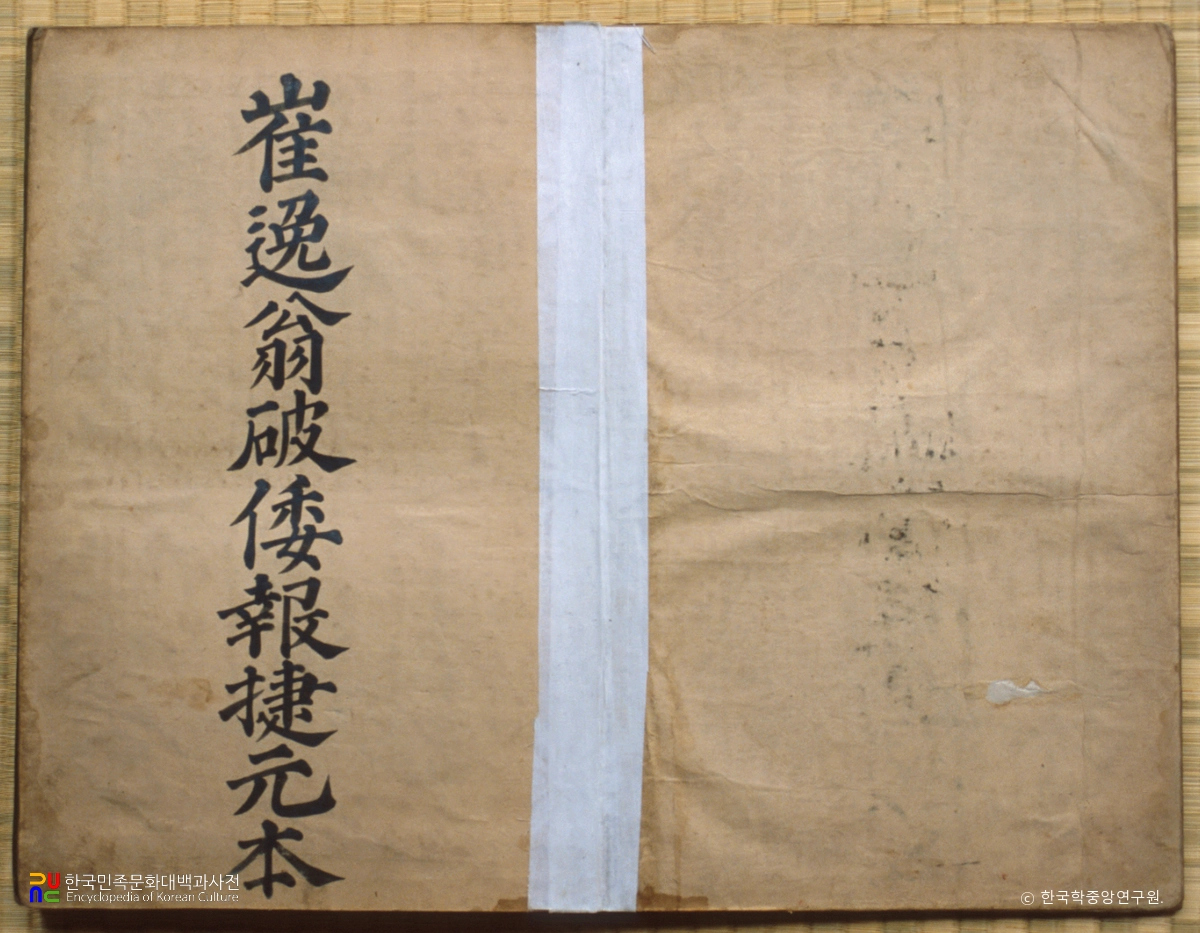 崔逸翁破倭報捷元本
한국민족문화대백과사전
Encyclopedia of Korean Culture
© 한국학중앙연구원.